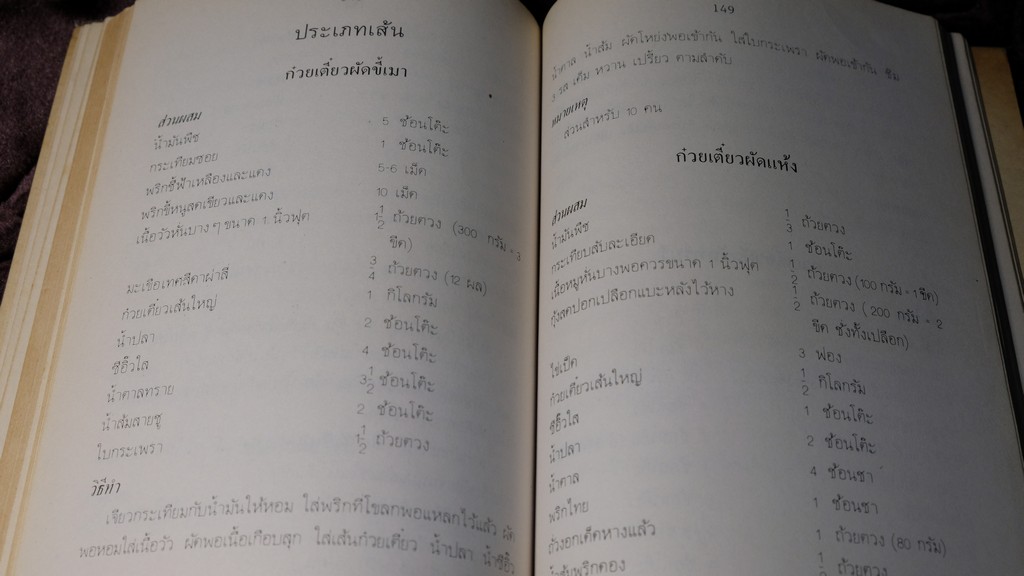 ประเภทเส้น
ก๋วยเตี๋ยวผัดขี้เมา
ส่วนผสม
น้ำมันพืช 5 ช้อนโต๊ะ
กระเทียมซอย 1 ช้อนโต๊ะ
พริกชี้ฟ้าเหลืองและแดง 5-6 เม็ด
พริกขี้หนูสดเขียวและแดง 10 เม็ด
เนื้อวัวหั่นบางๆ ขนาด 1 นิ้วฟุต 1 1/2 ถ้วยตวง (300 กรัม = 3
ขีด)
มะเขือเทศสีดาผ่าสี่ 3/4 ถ้วยตวง (12 ผล)
ก๋วยเตี๋ยวเส้นใหญ่ 1 กิโลกรัม
น้ำปลา 2 ช้อนโต๊ะ
ซีอิ๊วใส 4 ช้อนโต๊ะ
น้ำตาลทราย 3 1/2 ช้อนโต๊ะ
น้ำส้มสายชู 2 ช้อนโต๊ะ
ใบกระเพรา 1/2 ถ้วยตวง
วิธีทำ
เจียวกระเทียมกับน้ำมันให้หอม ใส่พริกที่โขลกพอแหลกไว้แล้ว ผัด
พอหอมใส่เนื้อวัว ผัดพอเนื้อเกือบสุก ใส่เส้นก๋วยเตี๋ยว น้ำปลา น้ำซีอิ๊ว
149
น้ำตาล น้ำส้ม ผัดโหย่งพอเข้ากัน ใส่ใบกระเพรา ผัดพอเข้ากัน ชิม
3 รส เค็ม หวาน เปรี้ยว ตามลำดับ
หมายเหตุ
ส่วนสำหรับ 10 คน
ก๋วยเตี๋ยวผัดแห้ง
ส่วนผสม
น้ำมันพืช 1/3 ถ้วยตวง
กระเทียบสับละเอียด 1 ช้อนโต๊ะ
เนื้อหมูหั่นบางพอควรขนาด 1 นิ้วฟุต 1/2 ถ้วยตวง (100 กรัม = 1 ขีด)
กุ้งสดปอกเปลือกแบะหลังไว้หาง 1/2 ถ้วยตวง (200 กรัม = 2
ขีด ชั่งทั้งเปลือก)
ไข่เป็ด 3 ฟอง
ก๋วยเตี๋ยวเส้นใหญ่ 1/2 กิโลกรัม
ซีอิ๊วใส 1 ช้อนโต๊ะ
น้ำปลา 2 ช้อนโต๊ะ
น้ำตาล 4 ช้อนชา
พริกไทย 1 ช้อนชา
ถั่วงอกเด็ดหางแล้ว 1 ถ้วยตวง (80 กรัม)
น้ำส้มพริกดอง ถ้วยตวง